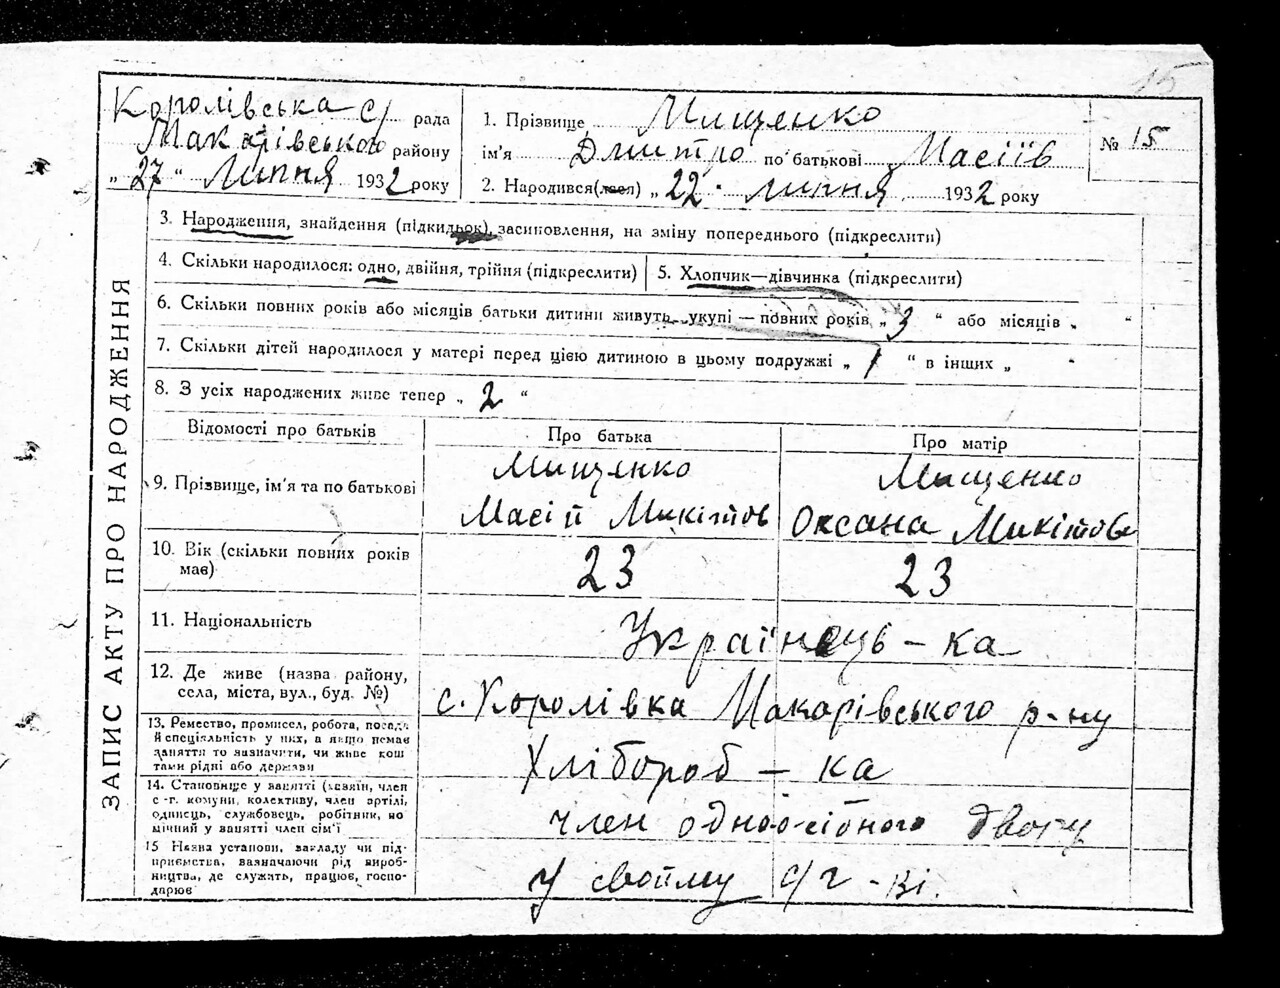 15
Королівська с/ рада
Макарівського району
„ 27 “ Липня 1932 року
1. Прізвище Мищенко
ім'я Дмитро по батькові Масіїв
2. Народився(лася) „ 22 · липня 1932 року
№ 15
ЗАПИС АКТУ ПРО НАРОДЖЕННЯ
3. Народження, знайдення (підкидьок), засиновлення, на зміну попереднього (підкреслити)
4. Скільки народилося: одно, двійня, трійня (підкреслити)
5. Хлопчик—дівчинка (підкреслити)
6. Скільки повних років або місяців батьки дитини живуть укупі — повних років „ 3 “ або місяців „ “
7. Скільки дітей народилося у матері перед цією дитиною в цьому подружжі „ 1 “ в інших „ “
8. З усіх народжених живе тепер „ 2 “
Відомості про батьків
Про батька
Про матір
9. Прізвище, ім'я та по батькові
Мищенко
Масій Микітов
Мищенко
Оксана Микітова
10. Вік (скільки повних років
має)
23
23
11. Національність
Українець – ка
12. Де живе (назва району,
села, міста, вул., буд. №)
с. Королівка Макарівського р-ну
13. Ремество, промисел, робота, посада
й спеціальність у них, а якщо немає
заняття то зазначити, чи живе кош
тами рідні або держави
Хлібороб – ка
14. Становище у занятті (хазяїн, член
с.-г. комуни, колективу, член артілі,
одинець, службовець, робітник, по
мічний у занятті член сім'ї
член одноосібного двору
15 Назва установи, закладу чи під-
приємства, зазначаючи рід вироб-
ництва, де служать, працює, госпо-
дарює
у своїму с/г-ві.